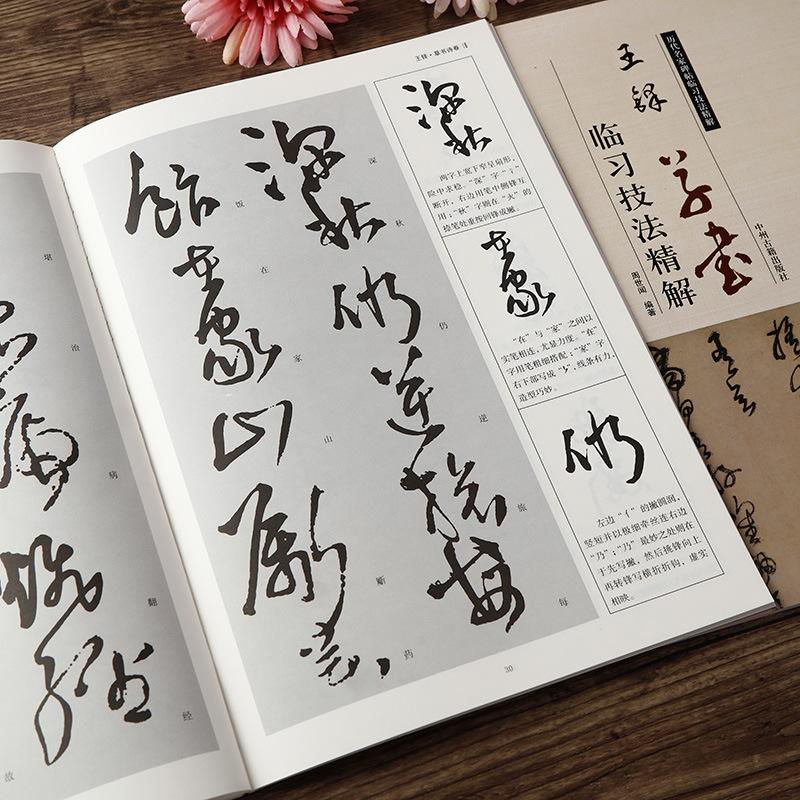 王铎·草书诗卷
深秋仍逆旅每
饭在家山斸药
堪治病翻经
故
深秋
两字上宽下窄呈扇形，
险中求稳。“深”字“氵”
断开，右边用笔中侧锋互
用；“秋”字则在“火”的
捺笔处重按回锋成撇。
在家
“在”与“家”之间以
实笔相连，尤显力度。“在”
字用笔粗细搭配；“家”字
右下部写成“ ”，线条有力，
造型巧妙。
仍
左边“亻”的撇圆润，
竖短并以极细牵丝连右边
“乃”；“乃”最妙之处则在
于先写撇，然后挑锋向上
再转锋写横折折钩，虚实
相映。
30
历代名家碑帖临习技法精解
王铎
草书
临习技法精解
周世闻 编著
中州古籍出版社